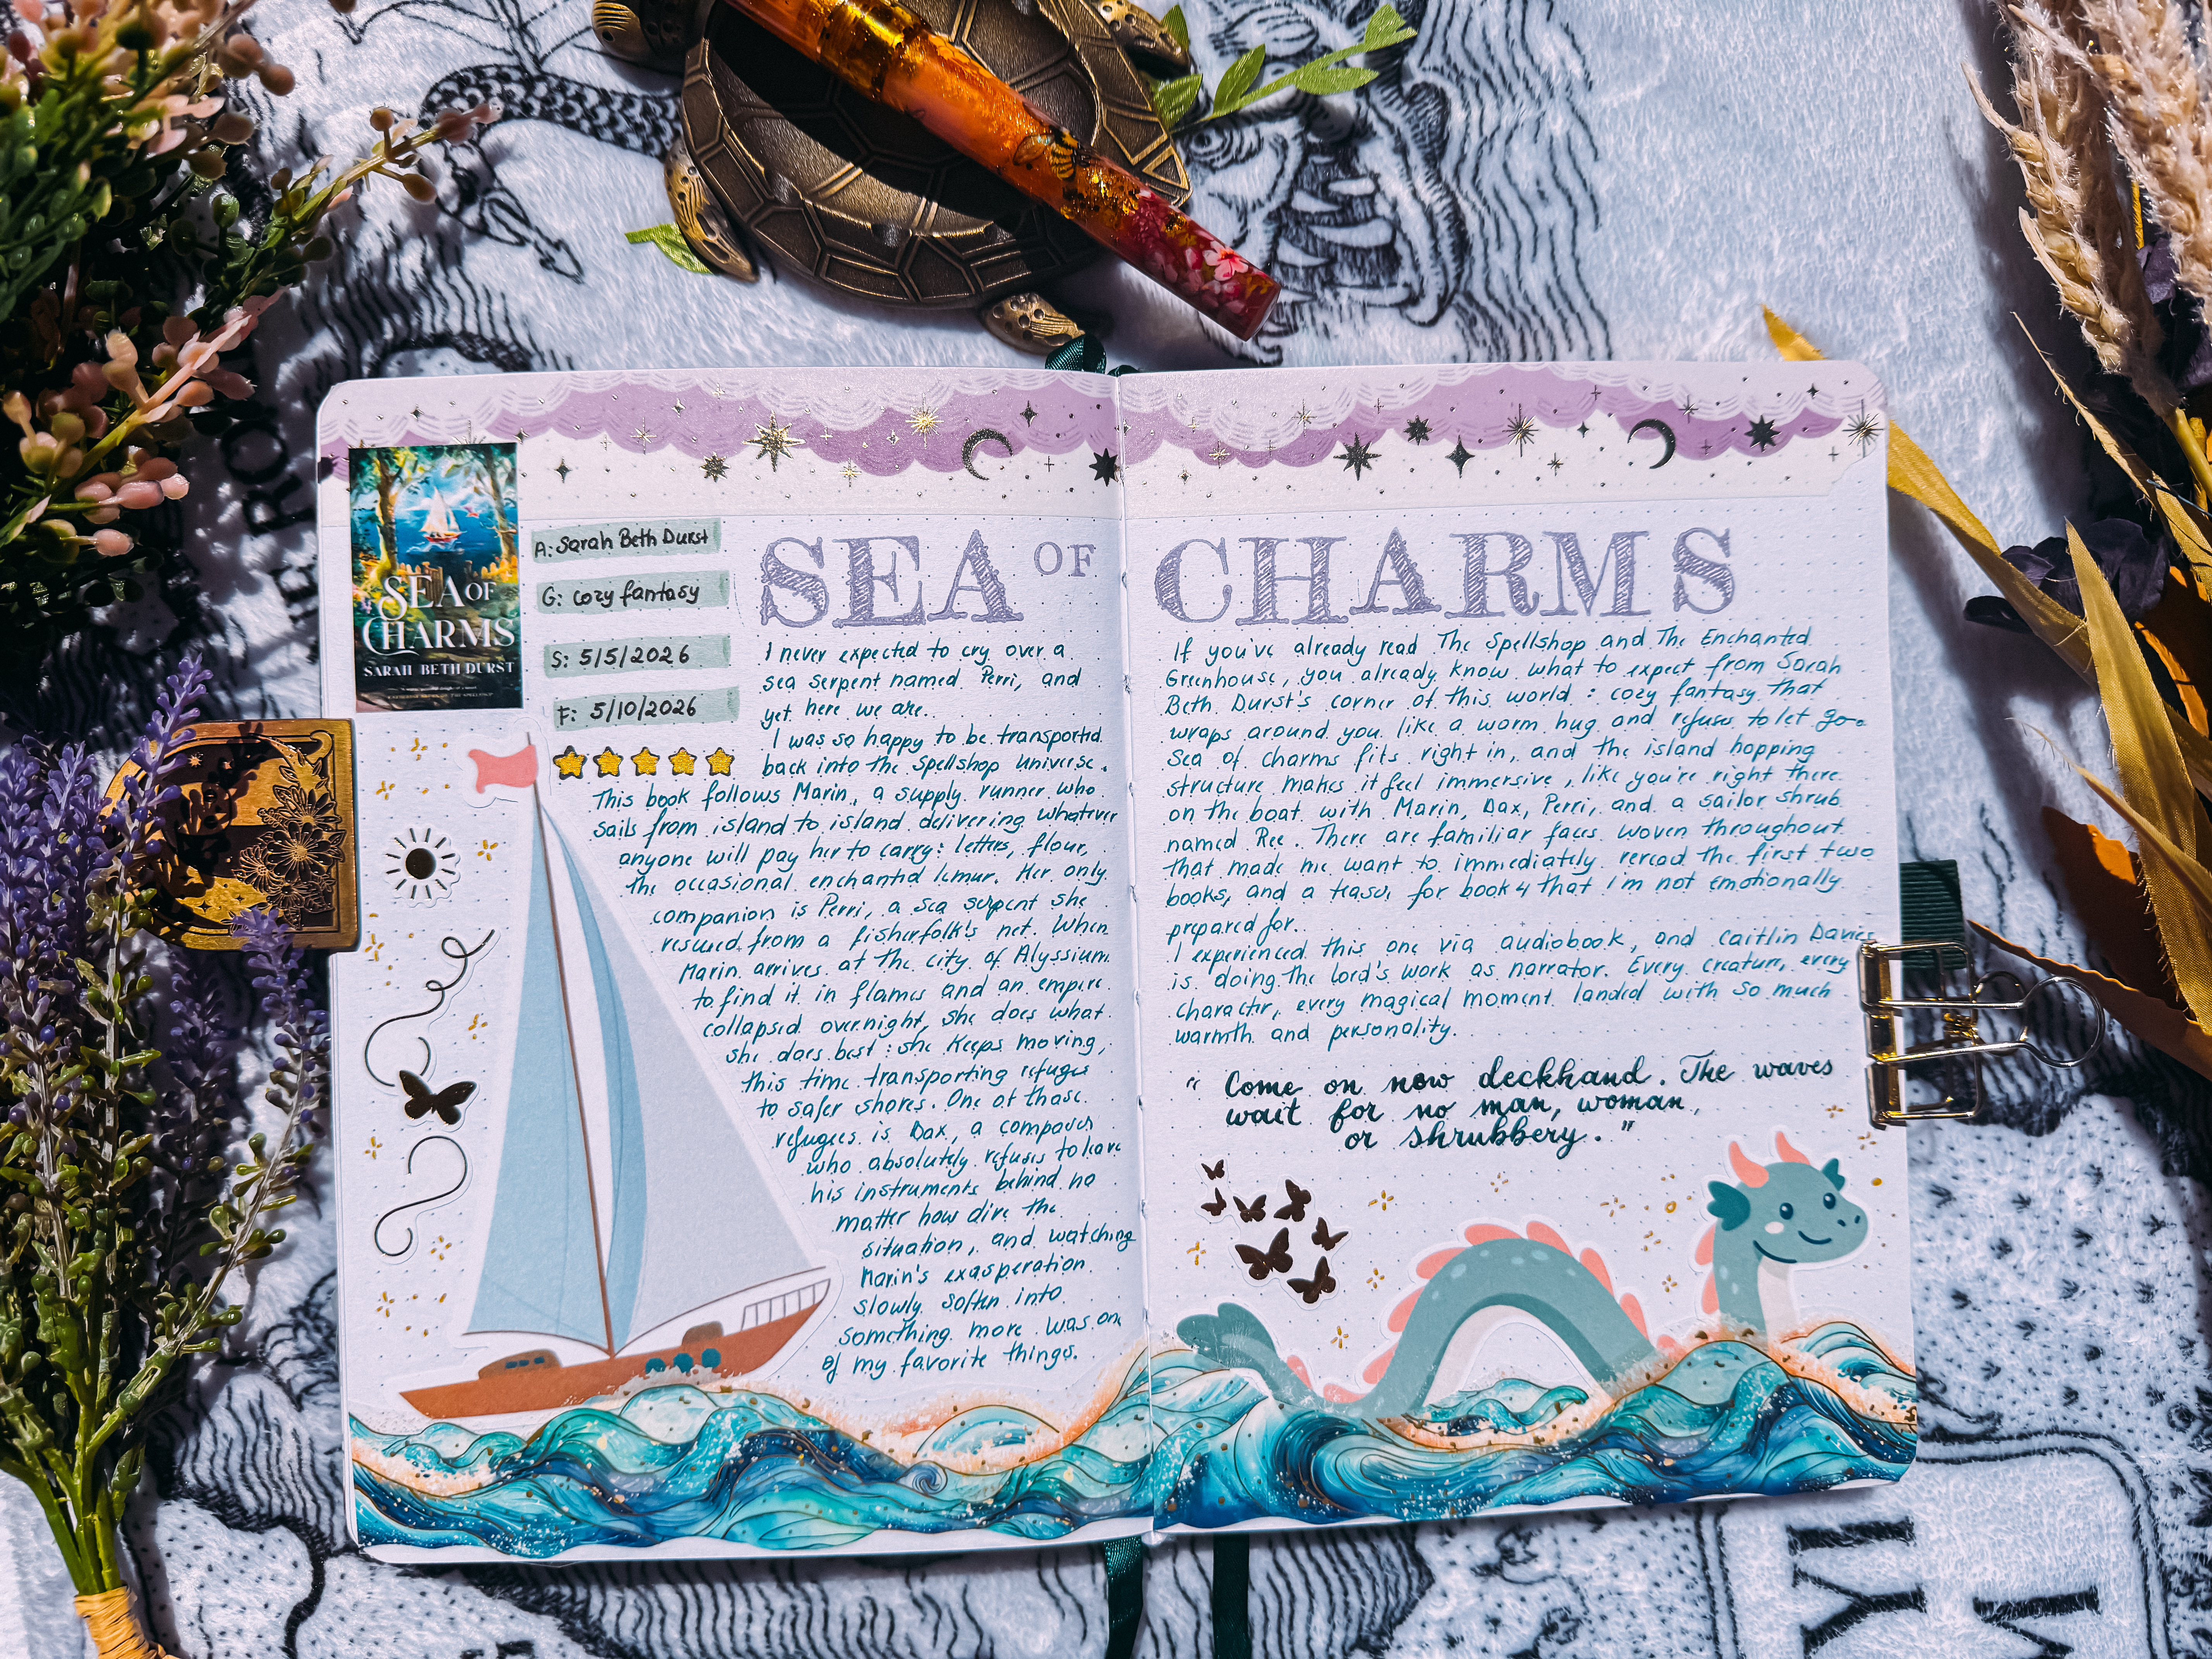 SEA OF
CHARMS
SARAH BETH DURST
A: Sarah Beth Durst
G: cozy fantasy
S: 5/5/2026
F: 5/10/2026
SEA OF CHARMS
I never expected to cry over a
sea serpent named Perri, and
yet here we are.
I was so happy to be transported
back into the Spellshop universe.
This book follows Marin, a supply runner who
sails from island to island delivering whatever
anyone will pay her to carry: letters, flour,
the occasional enchanted lemur. Her only
companion is Perri, a sea serpent she
rescued from a fisherfolk's net. When
Marin arrives at the city of Alyssium
to find it in flames and an empire
collapsed overnight, she does what
she does best: she keeps moving,
this time transporting refugees
to safer shores. One of those
refugees is Dax, a composer
who absolutely refuses to leave
his instruments behind no
matter how dire the
situation, and watching
Marin's exasperation
slowly soften into
something more was one
of my favorite things.
If you've already read The Spellshop and The Enchanted
Greenhouse, you already know what to expect from Sarah
Beth Durst's corner of this world: cozy fantasy that
wraps around you like a warm hug and refuses to let go.
Sea of Charms fits right in, and the island hopping
structure makes it feel immersive, like you're right there
on the boat with Marin, Dax, Perri, and a sailor shrub
named Ree. There are familiar faces woven throughout
that made me want to immediately reread the first two
books, and a teaser for book 4 that I'm not emotionally
prepared for.
I experienced this one via audiobook, and Caitlin Davies
is doing the lord's work as narrator. Every creature, every
character, every magical moment landed with so much
warmth and personality.
"Come on now deckhand. The waves
wait for no man, woman,
or shrubbery."